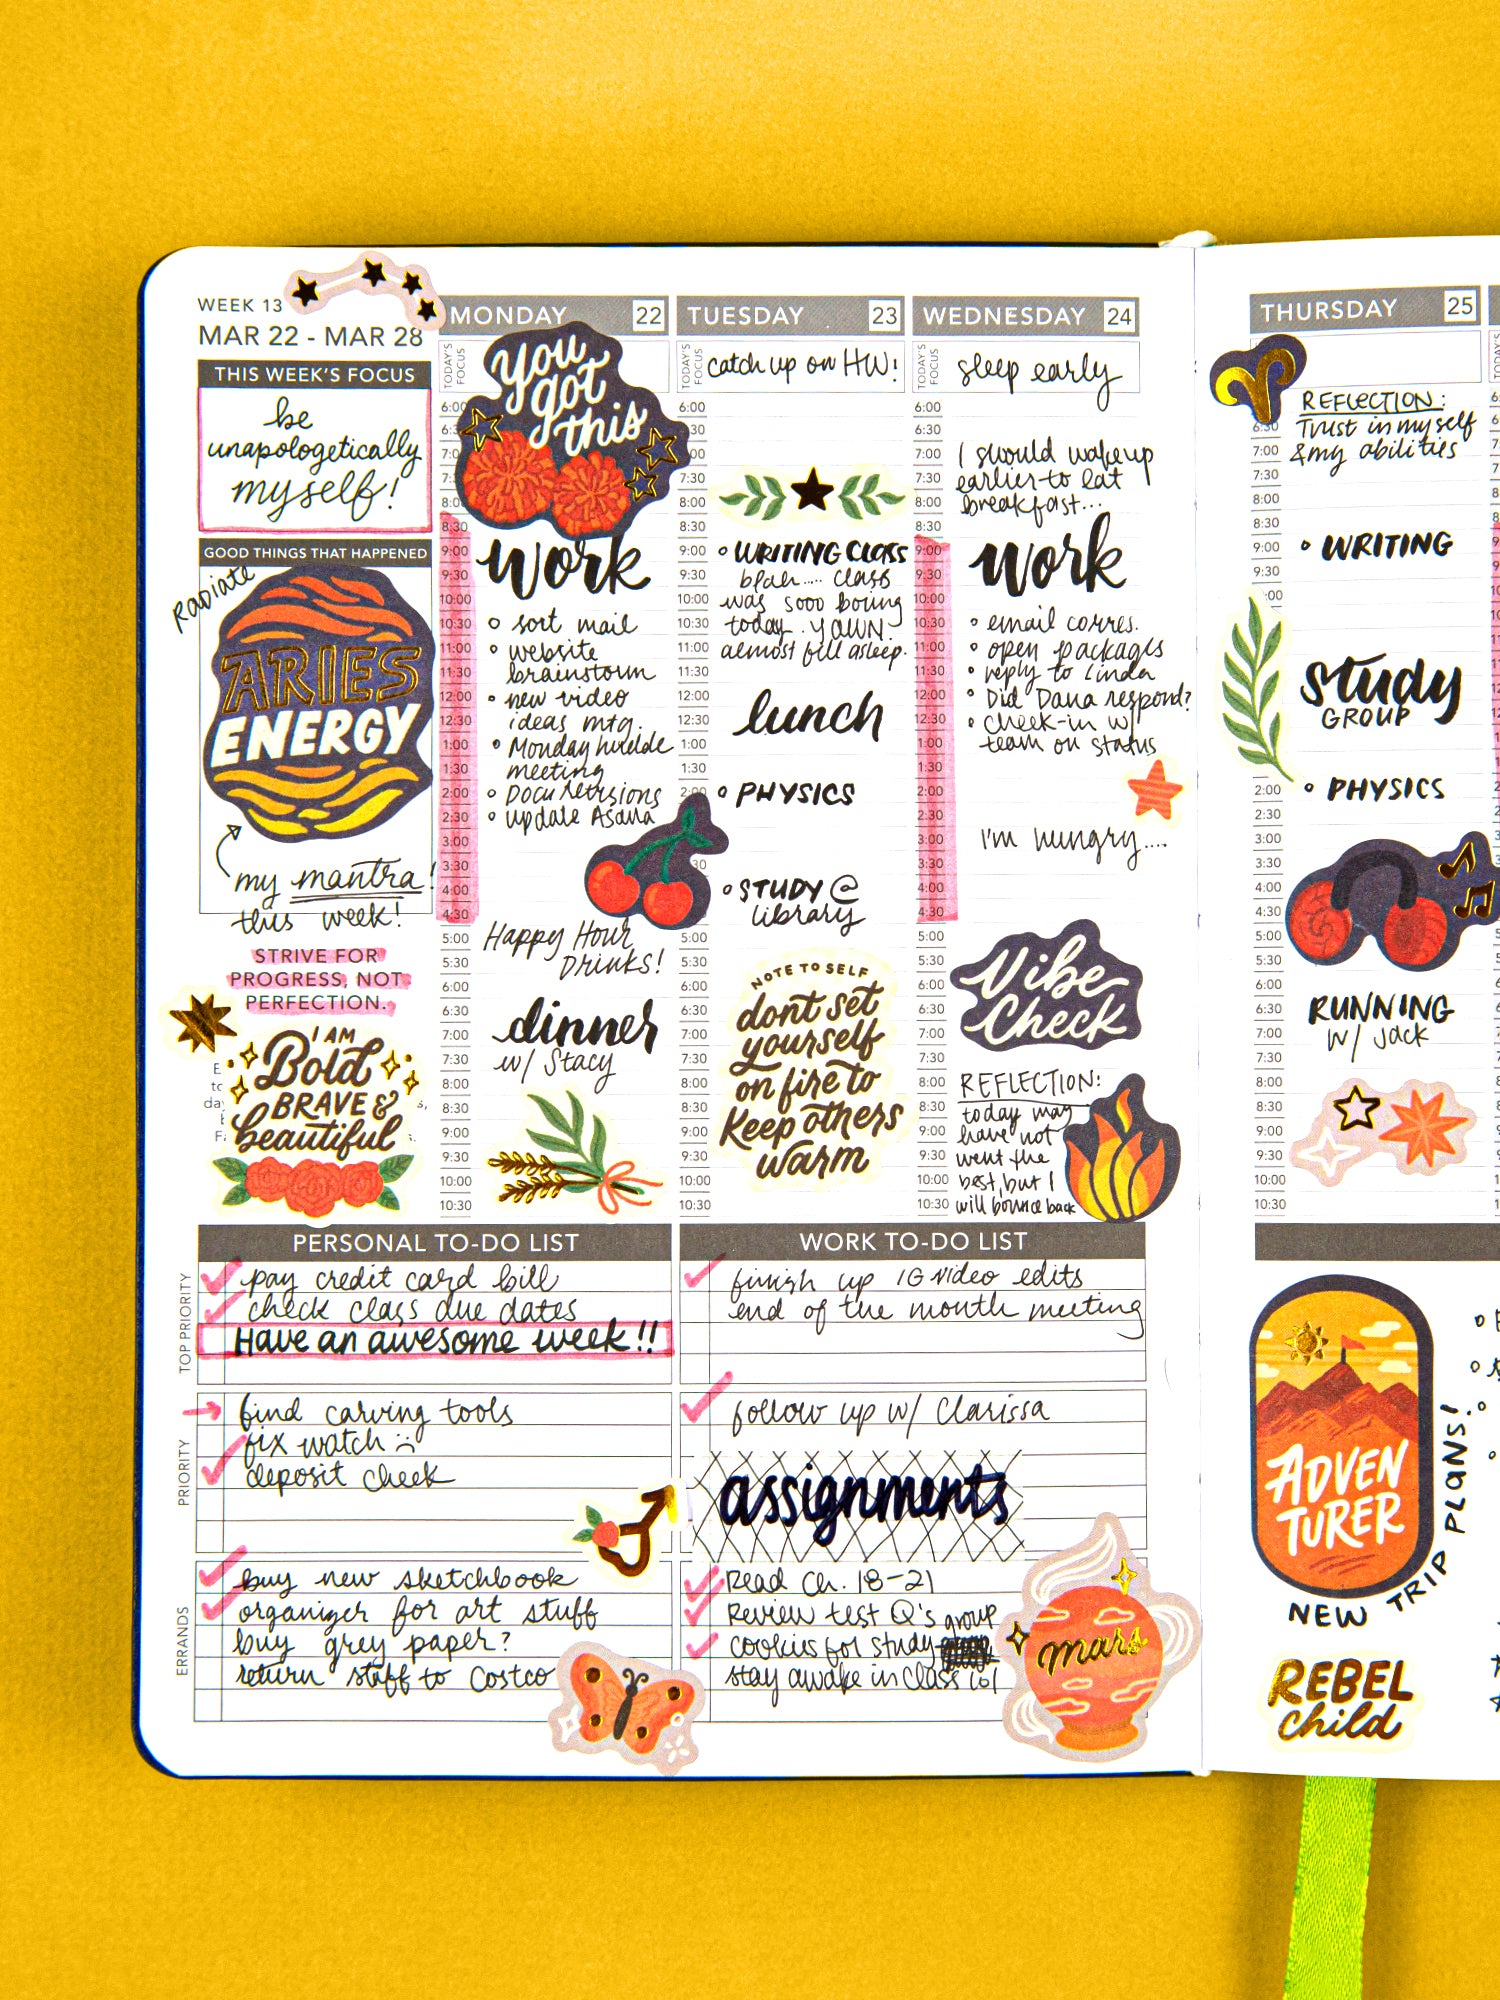 WEEK 13
MAR 22 - MAR 28
THIS WEEK'S FOCUS
be
unapologetically
myself!
GOOD THINGS THAT HAPPENED
Radiate
ARIES
ENERGY
my mantra!
this week!
STRIVE FOR
PROGRESS, NOT
PERFECTION.
I AM
Bold
BRAVE &
beautiful
MONDAY 22
TODAY'S FOCUS
You
got
this
6:00
7:00
7:30
8:00
8:30
9:00
9:30
10:00
10:30
11:00
11:30
12:00
12:30
1:00
1:30
2:00
2:30
3:00
3:30
4:00
4:30
5:00
5:30
6:00
6:30
7:00
7:30
8:00
8:30
9:00
9:30
10:00
10:30
work
sort mail
website
brainstorm
new video
ideas mtg.
Monday huddle
meeting
Docu Revisions
update Asana
Happy Hour
Drinks!
dinner
w/ Stacy
TUESDAY 23
TODAY'S FOCUS
catch up on HW!
6:00
6:30
7:00
7:30
8:00
8:30
9:00
9:30
10:00
10:30
11:00
11:30
12:00
12:30
1:00
1:30
2:00
2:30
5:00
5:30
6:00
6:30
7:00
7:30
8:00
8:30
9:00
9:30
10:00
10:30
WRITING CLASS
blah..... class
was sooo boring
today. YAWN.
almost fell asleep.
lunch
PHYSICS
STUDY @
library
NOTE TO SELF
dont set
yourself
on fire to
keep others
warm
WEDNESDAY 24
TODAY'S FOCUS
sleep early
6:00
6:30
7:00
7:30
8:00
8:30
9:00
9:30
10:00
10:30
11:00
11:30
12:00
12:30
1:00
1:30
2:00
2:30
3:00
3:30
4:00
4:30
5:00
5:30
6:00
6:30
7:00
7:30
8:00
8:30
9:00
9:30
10:00
10:30
I should wake up
earlier to eat
breakfast...
work
email corres.
open packages
reply to Linda
Did Dana respond?
check-in w/
team on status
I'm hungry....
Vibe
Check
REFLECTION:
today may
have not
went the
best, but I
will bounce back
THURSDAY 25
6:30
7:00
7:30
8:00
8:30
9:00
9:30
2:00
2:30
3:00
3:30
4:00
4:30
6:00
6:30
7:00
7:30
8:00
8:30
9:00
9:30
10:00
10:30
REFLECTION:
Trust in myself
& my abilities
WRITING
study
GROUP
PHYSICS
RUNNING
w/ Jack
PERSONAL TO-DO LIST
TOP PRIORITY
pay credit card bill
check class due dates
Have an awesome week!!
PRIORITY
find carving tools
fix watch
deposit check
ERRANDS
buy new sketchbook
organizer for art stuff
buy grey paper?
return stuff to Costco
WORK TO-DO LIST
finish up IG video edits
end of the month meeting
follow up w/ Clarissa
assignments
Read Ch. 18-21
Review test Q's
cookies for study group
stay awake in class lol
mars
ADVEN
TURER
NEW TRIP PLANS!
REBEL
child